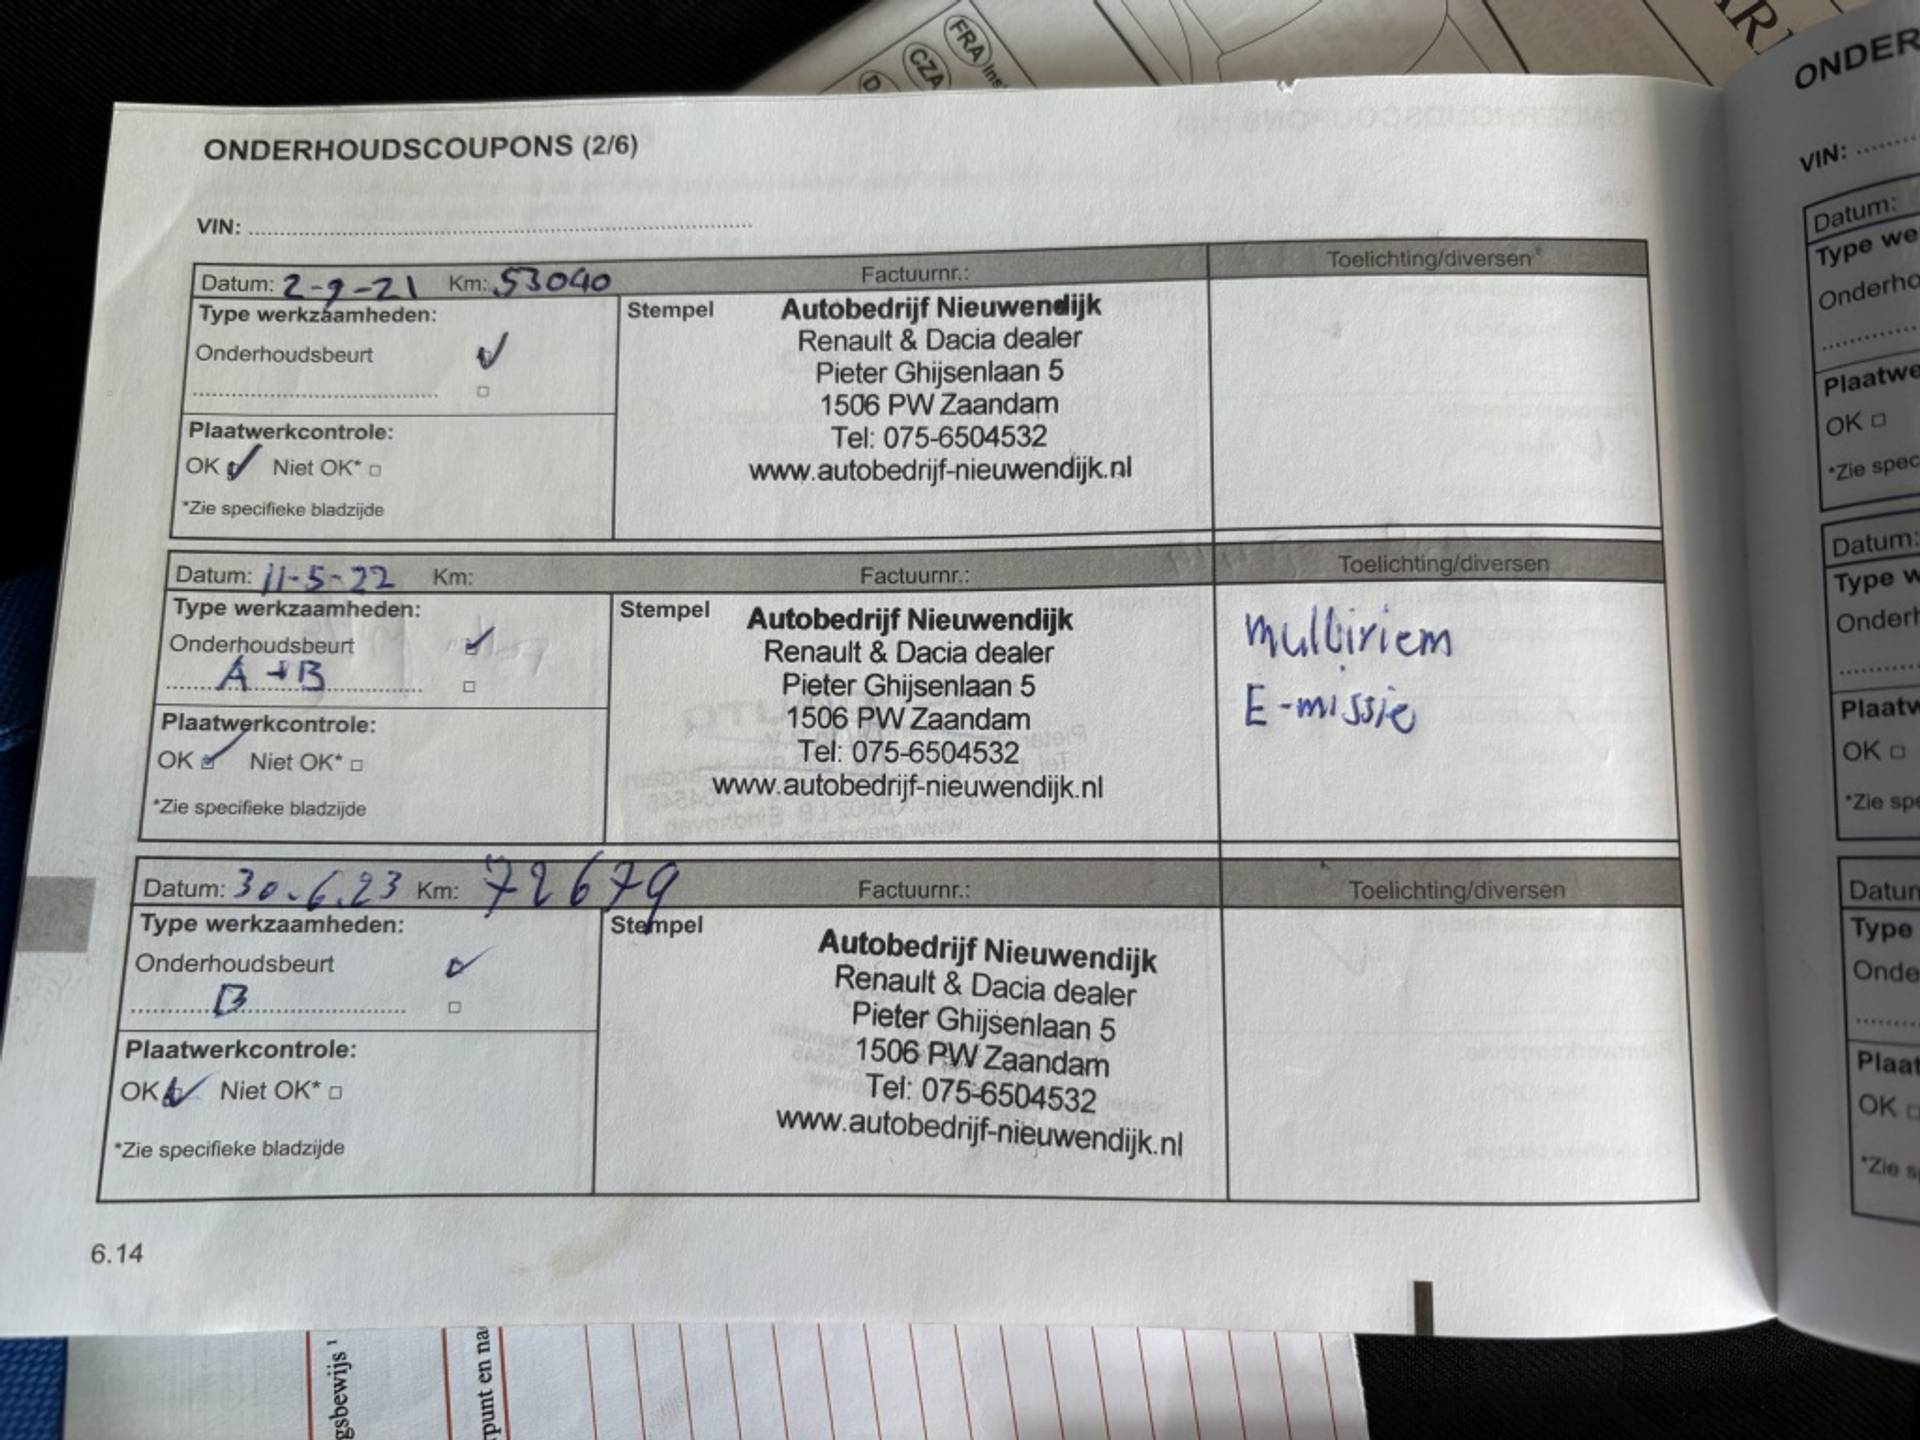 FRA
CZA
D
ONDERHOUDSCOUPONS (2/6)
VIN:
Datum: 2-9-21 Km: 53040 Factuurnr.: Toelichting/diversen*
Type werkzaamheden:
Onderhoudsbeurt
Plaatwerkcontrole:
OK Niet OK*
*Zie specifieke bladzijde
Stempel
Autobedrijf Nieuwendijk
Renault & Dacia dealer
Pieter Ghijsenlaan 5
1506 PW Zaandam
Tel: 075-6504532
www.autobedrijf-nieuwendijk.nl
Datum: 11-5-22 Km: Factuurnr.: Toelichting/diversen
Type werkzaamheden:
Onderhoudsbeurt
A+B
Plaatwerkcontrole:
OK Niet OK*
*Zie specifieke bladzijde
Stempel
Autobedrijf Nieuwendijk
Renault & Dacia dealer
Pieter Ghijsenlaan 5
1506 PW Zaandam
Tel: 075-6504532
www.autobedrijf-nieuwendijk.nl
multiriem
E-missie
Datum: 30.6.23 Km: 72679 Factuurnr.: Toelichting/diversen
Type werkzaamheden:
Onderhoudsbeurt
B
Plaatwerkcontrole:
OK Niet OK*
*Zie specifieke bladzijde
Stempel
Autobedrijf Nieuwendijk
Renault & Dacia dealer
Pieter Ghijsenlaan 5
1506 PW Zaandam
Tel: 075-6504532
www.autobedrijf-nieuwendijk.nl
6.14
ONDER
VIN:
Datum:
Type we
Onderho
Plaatwe
OK
*Zie spec
Datum:
Type w
Onderh
Plaatw
OK
*Zie spe
Datum
Type
Onde
Plaat
OK
*Zie s
gsbewijs
punt en na